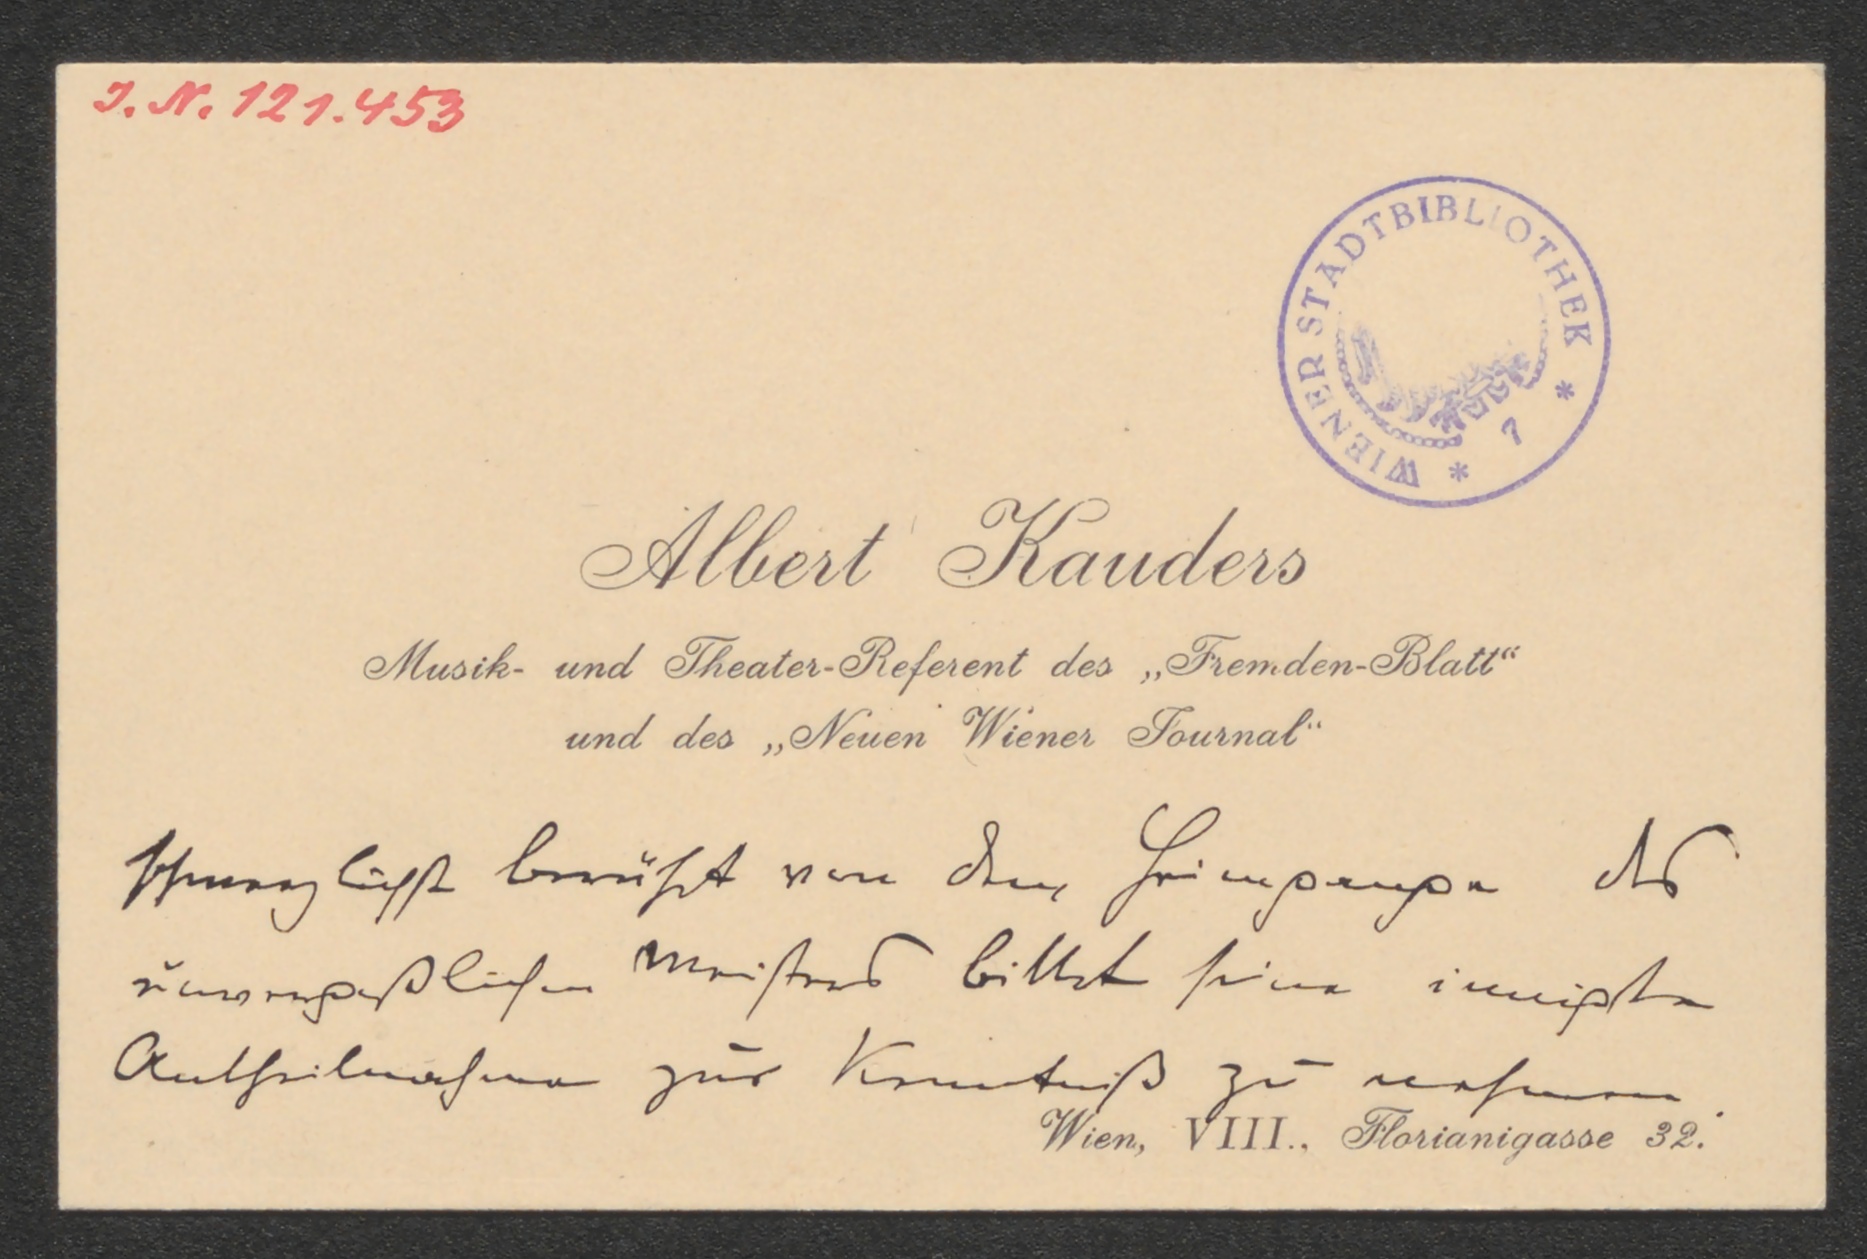 I. N. 121.453
WIENER STADTBIBLIOTHEK * 7 *
Albert Kauders
Musik- und Theater-Referent des „Fremden-Blatt“
und des „Neuen Wiener Journal“
schmerzlichst berührt von dem Heimgange des
unvergeßlichen Meisters bittet seine innigste
Antheilnahme zur Kenntniß zu nehmen.
Wien, VIII., Florianigasse 32.